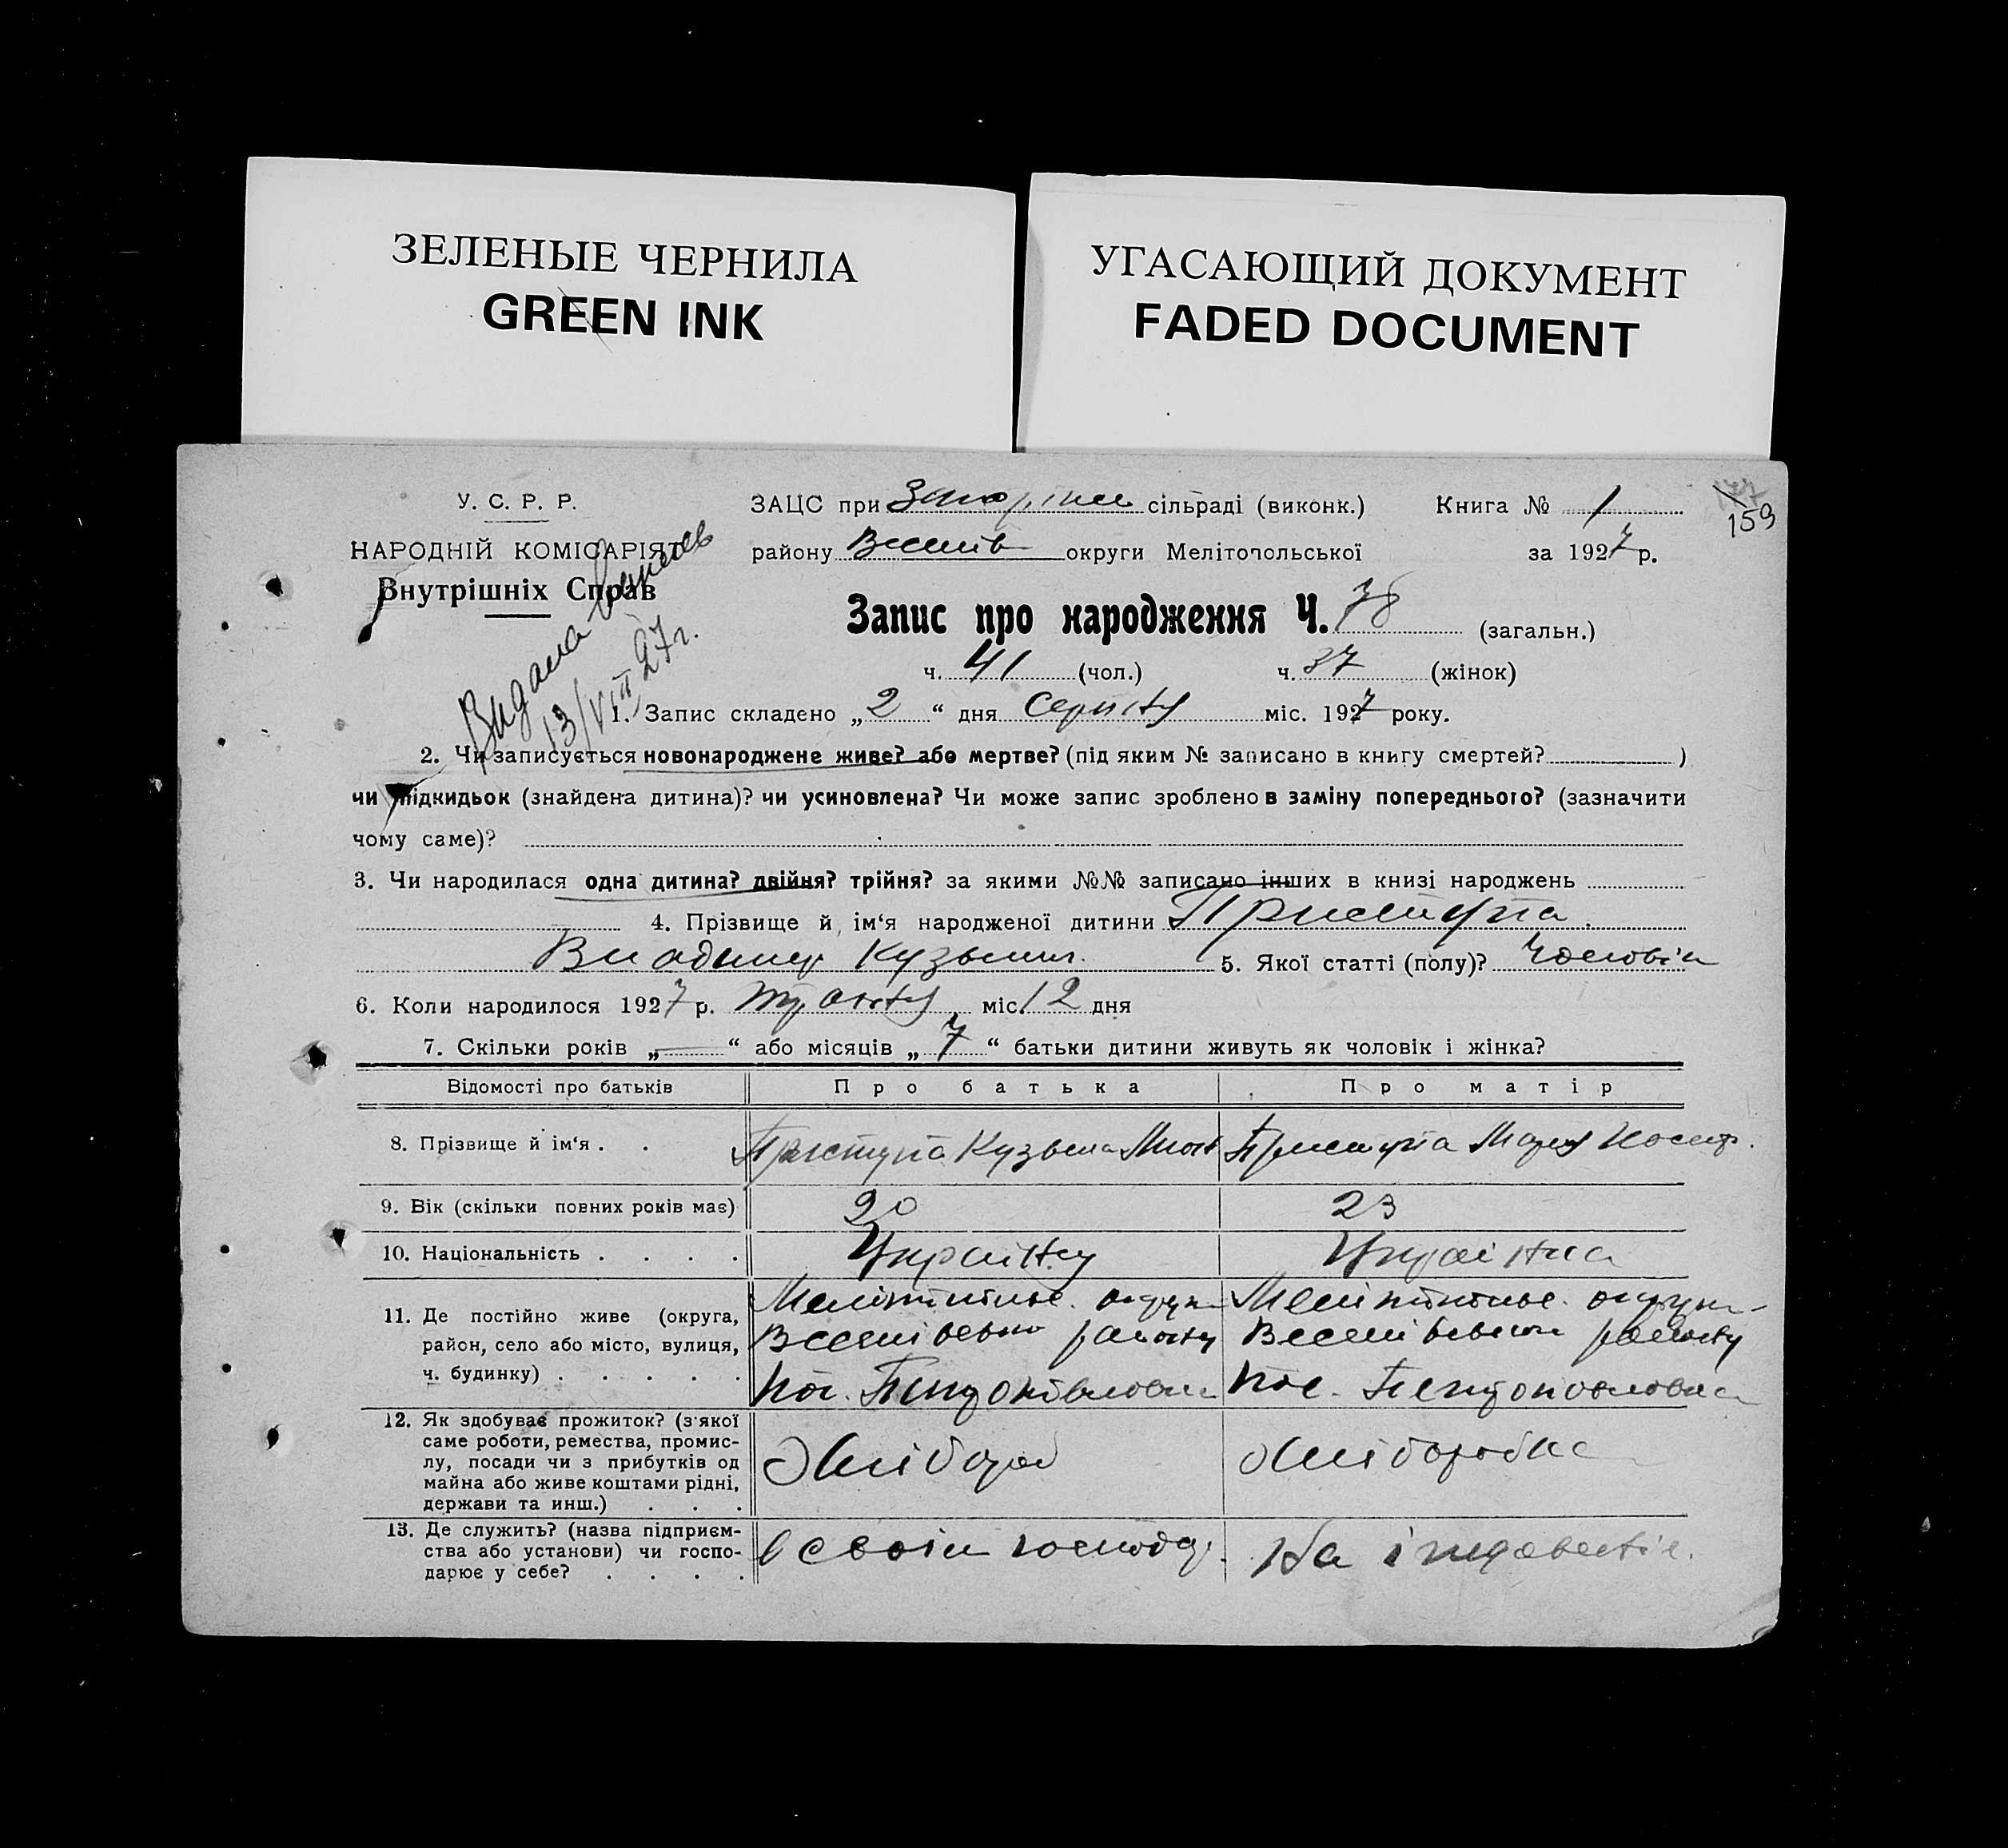 ЗЕЛЕНЫЕ ЧЕРНИЛА
GREEN INK
УГАСАЮЩИЙ ДОКУМЕНТ
FADED DOCUMENT
У. С. Р. Р.
НАРОДНІЙ КОМІСАРІЯТ
Внутрішніх Справ
ЗАЦС при сільраді (виконк.) Книга № 1
159
району Веселів округи Мелітопольської за 1927 р.
Видана
13/VIII 27 г.
Запис про народження Ч. 78 (загальн.)
ч. 41 (чол.) ч. 37 (жінок)
1. Запис складено „2“ дня серпня міс. 1927 року.
2. Чи записується новонароджене живе? або мертве? (під яким № записано в книгу смертей? )
чи підкидьок (знайдена дитина)? чи усиновлена? Чи може запис зроблено в заміну попереднього? (зазначити
чому саме)?
3. Чи народилася одна дитина? двійня? трійня? за якими №№ записано інших в книзі народжень
4. Прізвище й ім‘я народженої дитини Приступа
Владимир Кузьмич. 5. Якої статті (полу)? Чоловік
6. Коли народилося 1927 р. міс. 12 дня
7. Скільки років „—“ або місяців „7“ батьки дитини живуть як чоловік і жінка?
Відомості про батьків Про батька Про матір
8. Прізвище й ім‘я . . Приступа Кузьма Приступа Мария
9. Вік (скільки повних років має) 20 23
10. Національність . . . . Україн Українка
11. Де постійно живе (округа, Мелітопільс. округи Мелітопільс. округи
район, село або місто, вулиця, Веселівського району Веселівського району
ч. будинку) . . . . .
12. Як здобуває прожиток? (з якої
саме роботи, ремества, промис-
лу, посади чи з прибутків од Хлібороб Хліборобка
майна або живе коштами рідні,
держави та инш.) . . .
13. Де служить? (назва підприєм-
ства або установи) чи госпо- в своїм господар. На
дарює у себе? . . . .